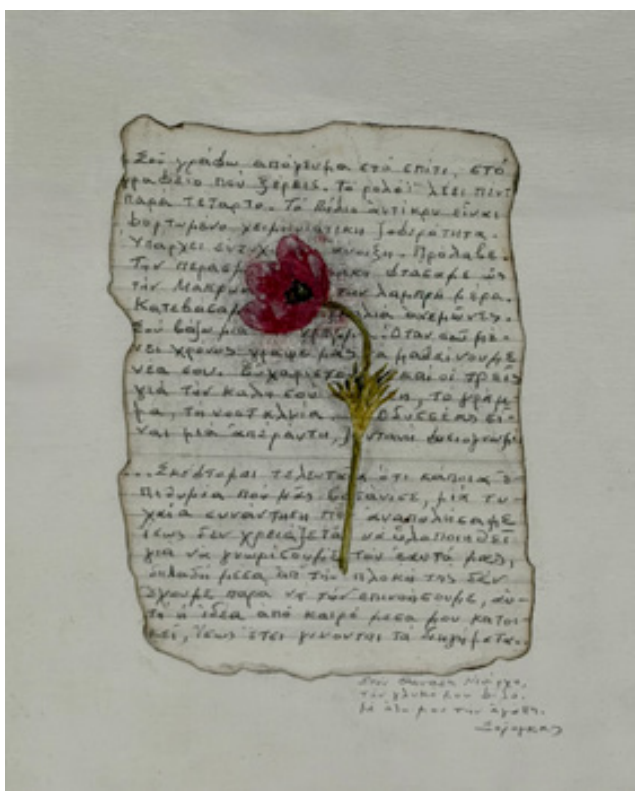 Σοῦ γράφω απόγευμα στό σπίτι, στό
γραφείο πού ξέρεις. Τό ρολόϊ λέει πέντε
παρά τέταρτο. Τό βάζο ἀντίκρυ εἶναι
φορτωμένο χειμωνιάτικη ζοφερότητα.
Ὑπάρχει ἄνοιξη. Πρόλαβε.
Τήν φτάσαμε ὡς
τόν Μακρυ τήν λαμπρή μέρα.
Κατεβάσαμε ἀνεμῶνες.
Σοῦ βάζω μιά Ὅταν σοῦ μέ-
νει χρόνος γράψε μας νά μαθαίνουμε
νέα σου. Εὐχαριστ καί οἱ τρεῖς
γιά τήν καλή σου τό γράμ-
μα, τή νοσταλγία Ὀδυσσέας εἶ-
ναι μιά ἀπέραντη, ζωντανή φυσιογνωμί
...Σκέφτομαι τελευταῖα ὅτι κάποια ἐ-
πιθυμία πού μᾶς βασάνισε, μιά τυ-
χαία συνάντηση πού ἀναπολήσαμε
ἴσως δέν χρειάζεται νά ὑλοποιηθεῖ
γιά νά γνωρίσουμε τόν ἑαυτό μας,
δηλαδή μέσα ἀπ τήν πλοκή της δέν
ἔχουμε παρά νά τόν ἐπινοήσουμε, αὐ-
τή ἡ ἰδέα από καιρό μέσα μου κατοι-
κεῖ, ἴσως ἔτσι γίνονται τά διηγήματα..
Στόν Θανάση Νιάρχο,
τόν γλυκό μου φίλο.
Μέ ὅλη μου τήν ἀγάπη.
Σόρογκας